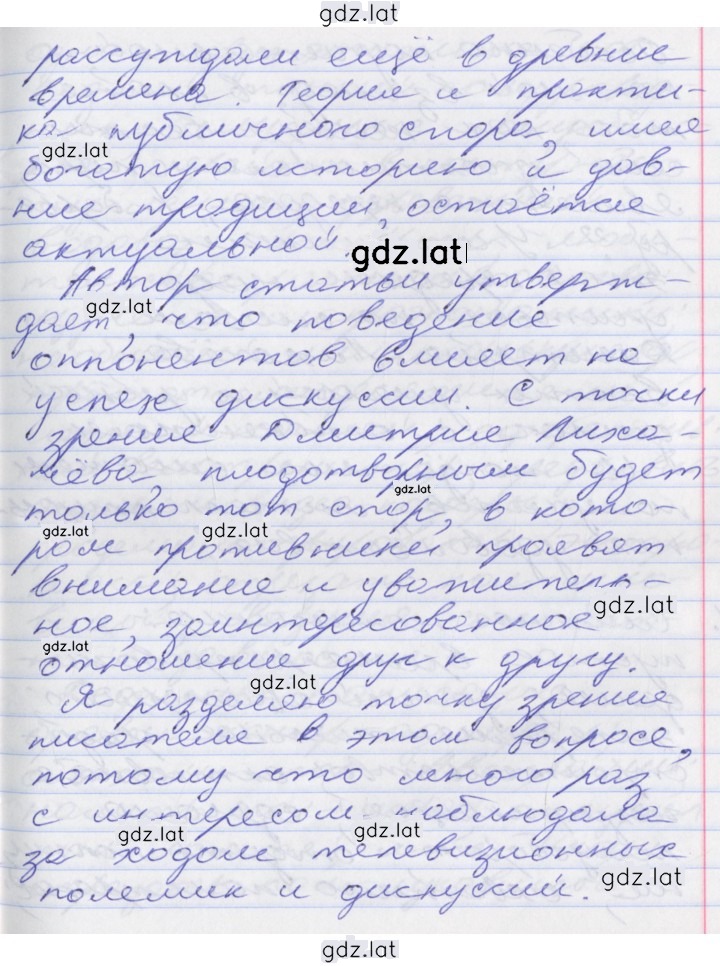 gdz.lat
рассуждали ещё в древние
времена. Теория и практи-
ка публичного спора, имея
gdz.lat
богатую историю и дав-
ние традиции, остаётся
актуальной.
gdz.lat
Автор статьи утверж-
gdz.lat
дает, что поведение
оппонентов влияет на
успех дискуссии. С точки
зрения Дмитрия Лиха-
чёва, плодотворным будет
gdz.lat
только тот спор, в кото-
gdz.lat gdz.lat
ром противники проявят
внимание и уважитель-
gdz.lat
ное, заинтересованное
gdz.lat
отношение друг к другу.
gdz.lat
Я разделяю точку зрения
писателя в этом вопросе,
потому что много раз
с интересом наблюдала
gdz.lat gdz.lat
за ходом телевизионных
gdz.lat
полемик и дискуссий.
gdz.lat